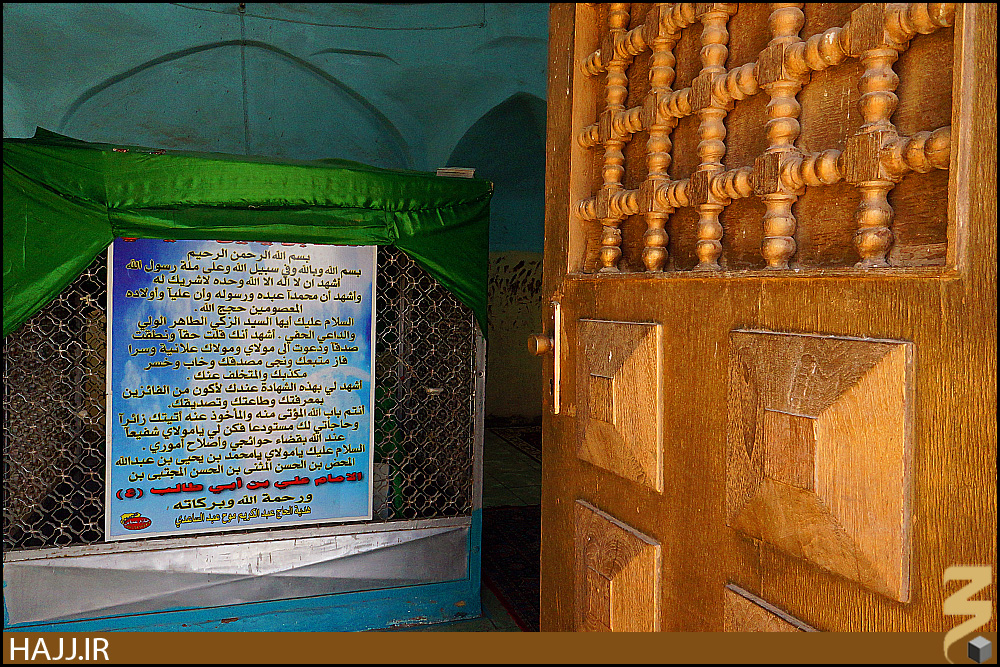 بسم الله الرحمن الرحيم
بسم الله وبالله وفي سبيل الله وعلى ملة رسول الله
أشهد ان لا اله الا الله وحده لاشريك له
واشهد ان محمدآ عبده ورسوله وان عليآ وأولاده
المعصومين حجج الله .
السلام عليك أيها السيد الزكي الطاهر الولي
والداعي الحفي . أشهد أنك قلت حقآ ونطقت
صدقآ ودعوت الى مولاي ومولاك علانية وسرا
فاز متبعك ونجى مصدقك وخاب وخسر
مكذبك والمتخلف عنك .
أشهد لي بهذه الشهادة عندك لأكون من الفائزين
بمعرفتك وطاعتك وتصديقك.
أنتم باب الله المؤتى منه والمأخوذ عنه أتيتك زائرآ
وحاجاتي لك مستودعآ فكن لي يامولاي شفيعآ
عند الله بقضاء حوائجي واصلاح أموري .
السلام عليك يامولاي يامحمد بن يحيى بن عبدالله
المحض بن الحسن المثنى بن الحسن المجتبى بن
الامام علي بن أبي طالب (ع)
ورحمة الله وبركاته
هدية الحاج عبد الكريم عبد الساعدي
HAJJ.IR